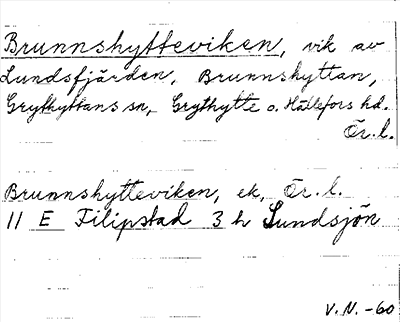 Brunnshytteviken, vik av
Lundsfjärden, Brunnshyttan,
Grythyttans sn, Grythytte o. Hällefors hd.
Ör. l.
Brunnshytteviken, ek, Ör. l.
11 E Filipstad 3 h Lundsjön
V.N. -60